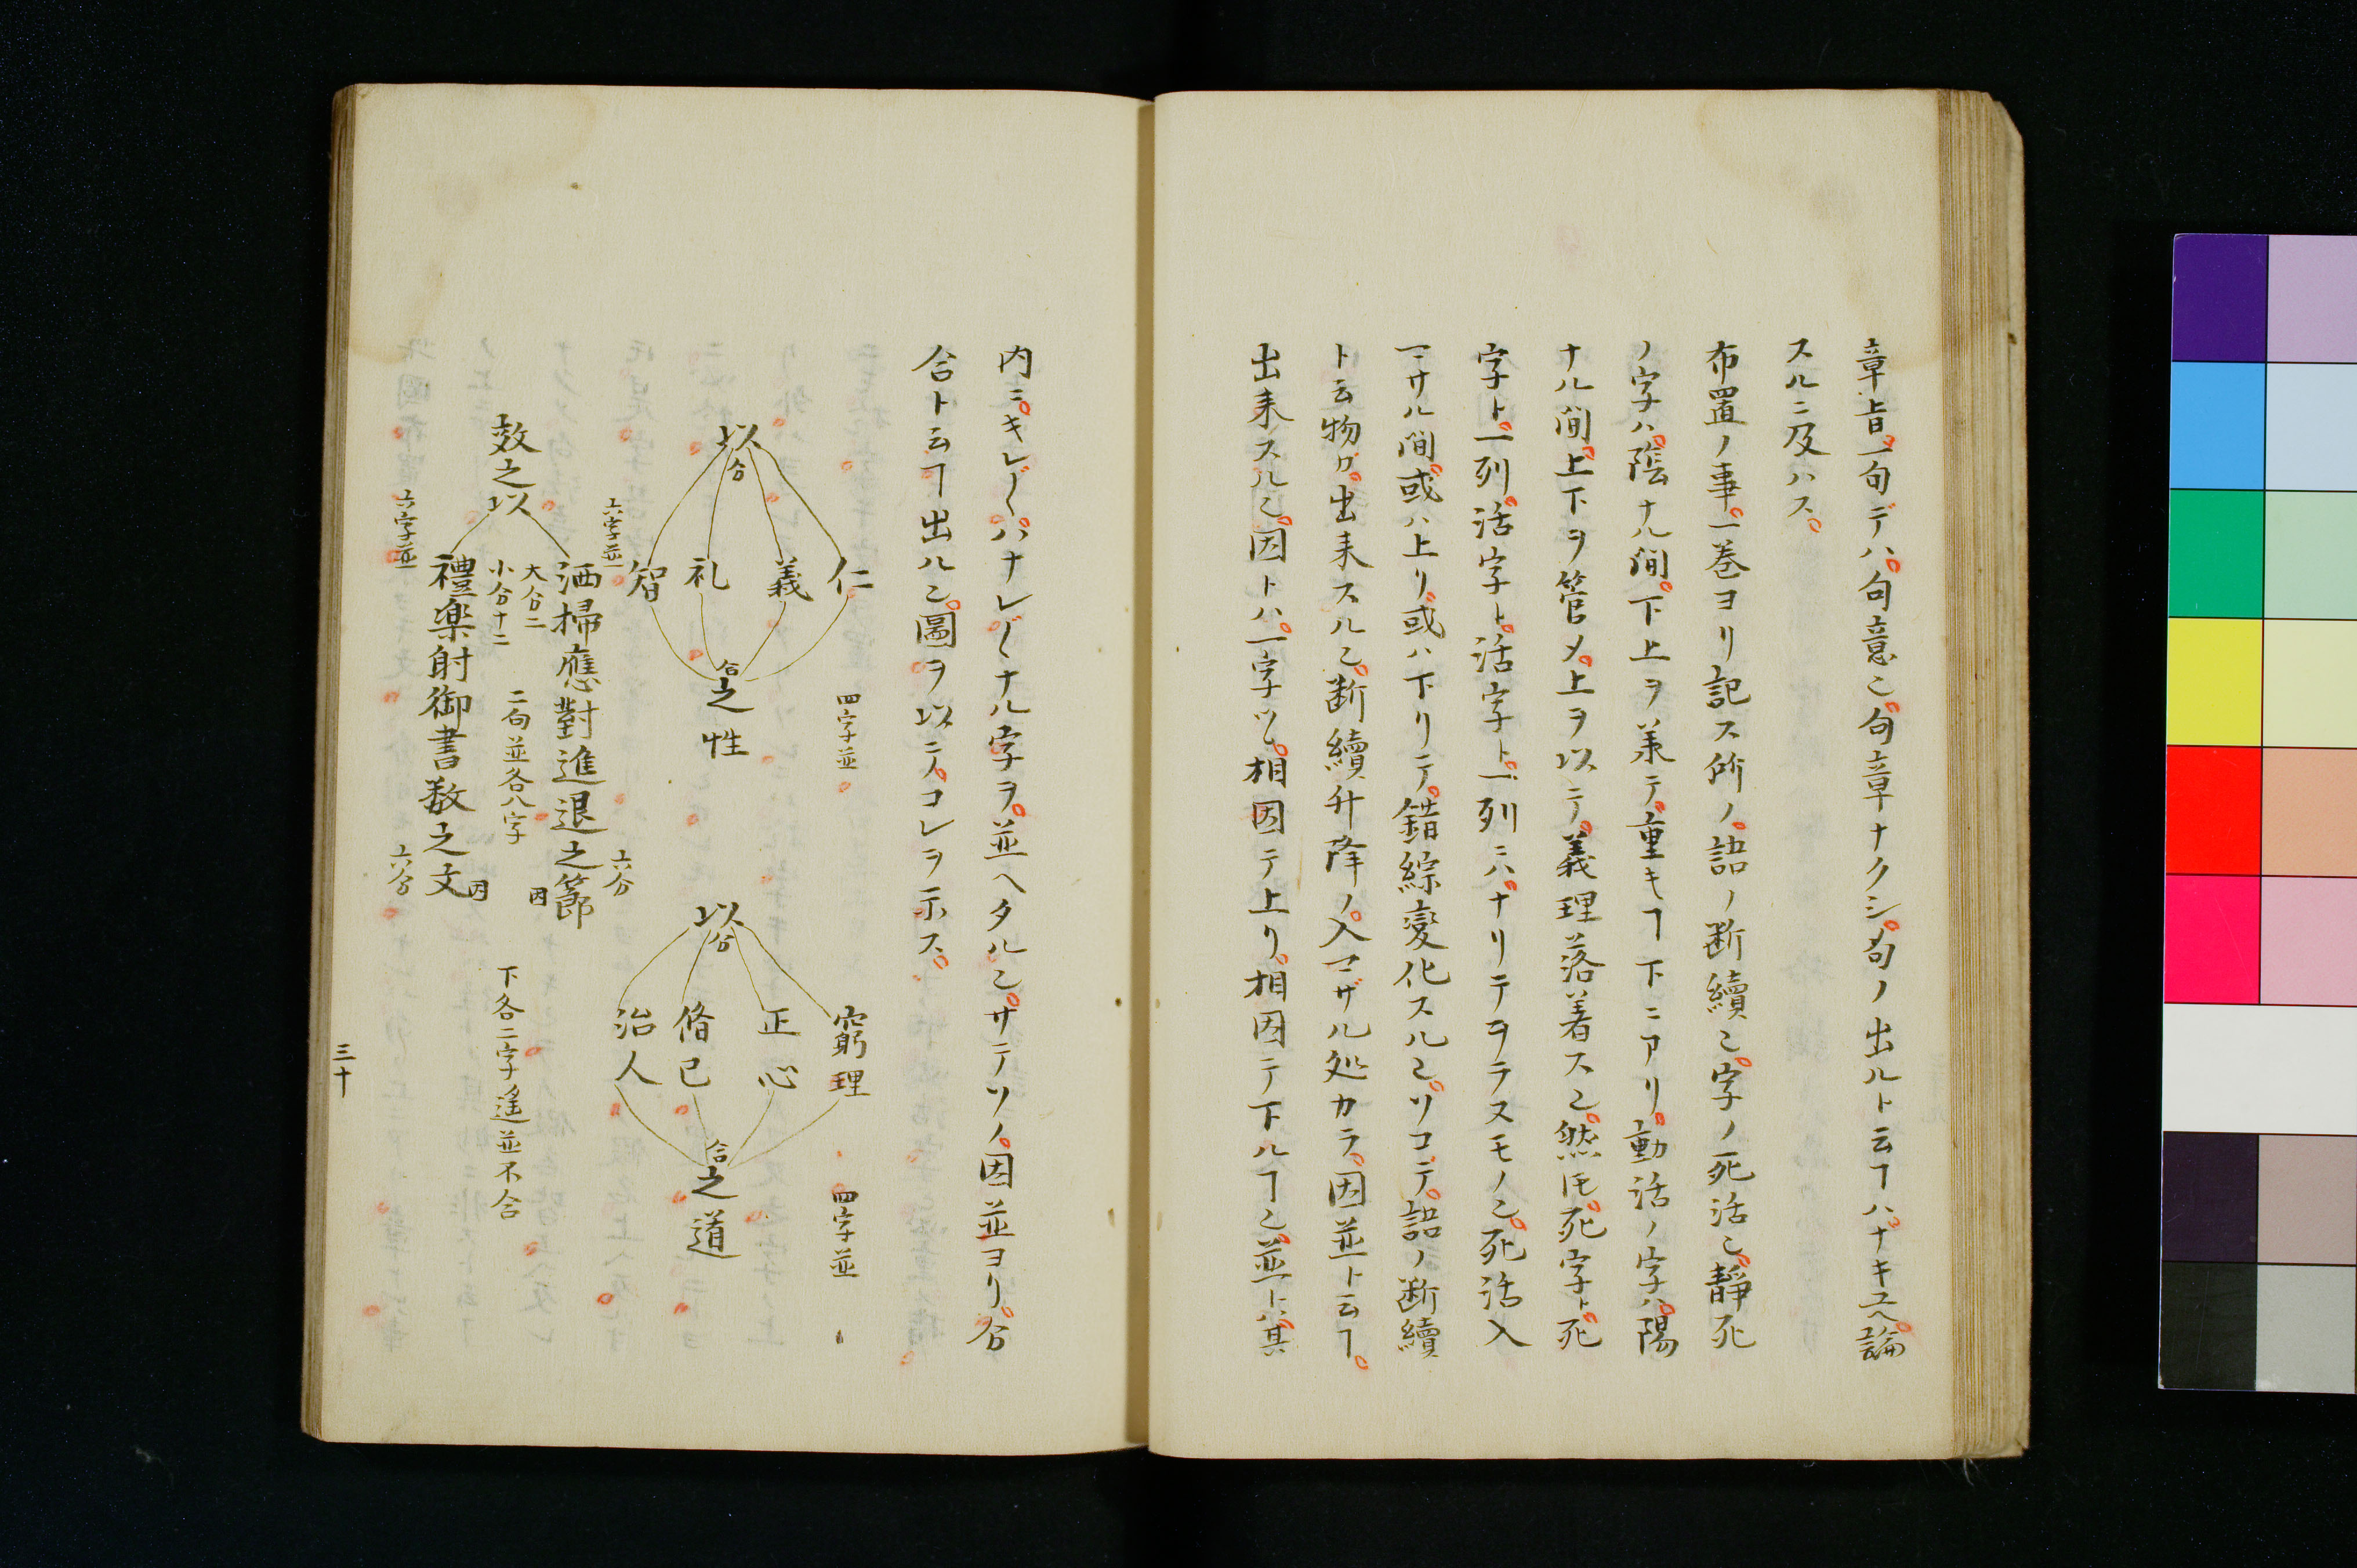 章旨。一句デハ。句意也。句章ナクシ。句ノ出ルト云ヿハ。ナキユヘ。論
スルニ及ハス。
布置ノ事。一巻ヨリ記ス所ノ。語ノ断續也。字ノ死活也。靜死
ノ字ハ。陰ナル間。下上ヲ兼テ。重キヿ下ニアリ。動活ノ字ハ。陽
ナル間。上下ヲ管メ。上ヲ以テ。義理落着ス也。然𪜈。死字ト。死
字ト。一列。活字ト。活字ト。一列ニハ。ナリテヲラスモノ也。死活入
マサル間。或ハ上リ。或ハ下リテ。錯綜變化スル也。ソコデ。語ノ断續
ト云物ガ。出来スル也。断續升降ノ。入マザル処カラ。因並ト云ヿ。
出来スル也。因トハ。一字ツヽ。相因テ上リ。相因テ下ルヿ也。並トハ。其
内ニ。キレ〴〵。ハナレ〴〵ナル字ヲ。並ヘタル也。サテソノ。因並ヨリ。分
合ト云ヿ出ル也。圖ヲ以テ。コレヲ示ス。
四字並
以 分
仁 義 礼 智
合 之性
四字並
以 分
窮理 正心 脩已 治人
合 之道
效之以
六字並
洒掃應對進退之節 因
六分
大分二
小分十二
二句並各八字
下各二字遙並不合
六字並
禮楽射御書数之文 因
六分
三十